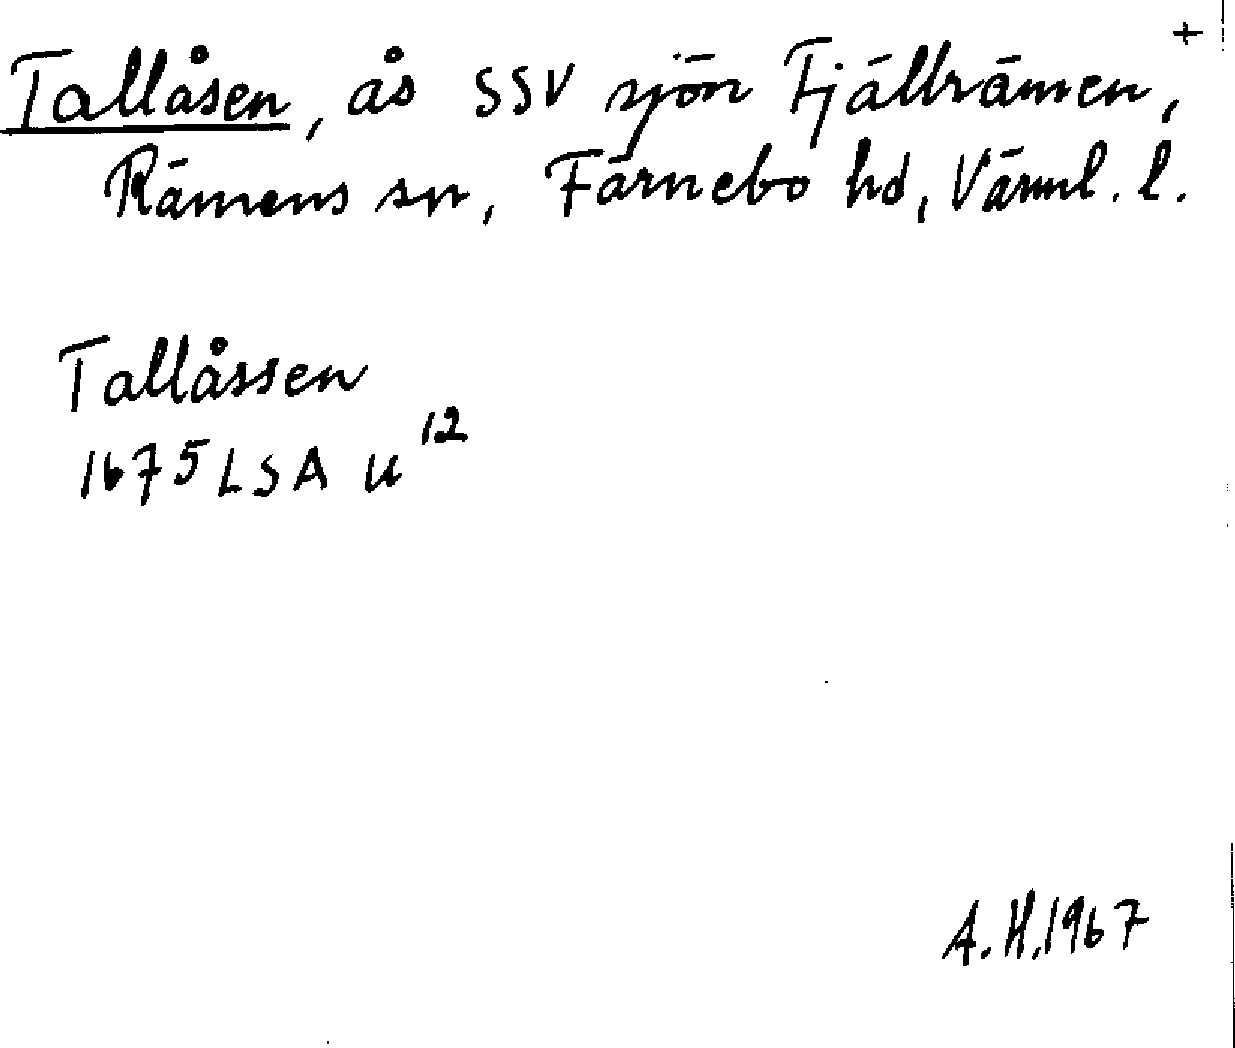 Tallåsen, ås SSV sjön Fjällrämen, +
Rämens sn, Färnebo hd, Värml. l.
Tallåssen
1675 LSA U 12
A.H. 1967